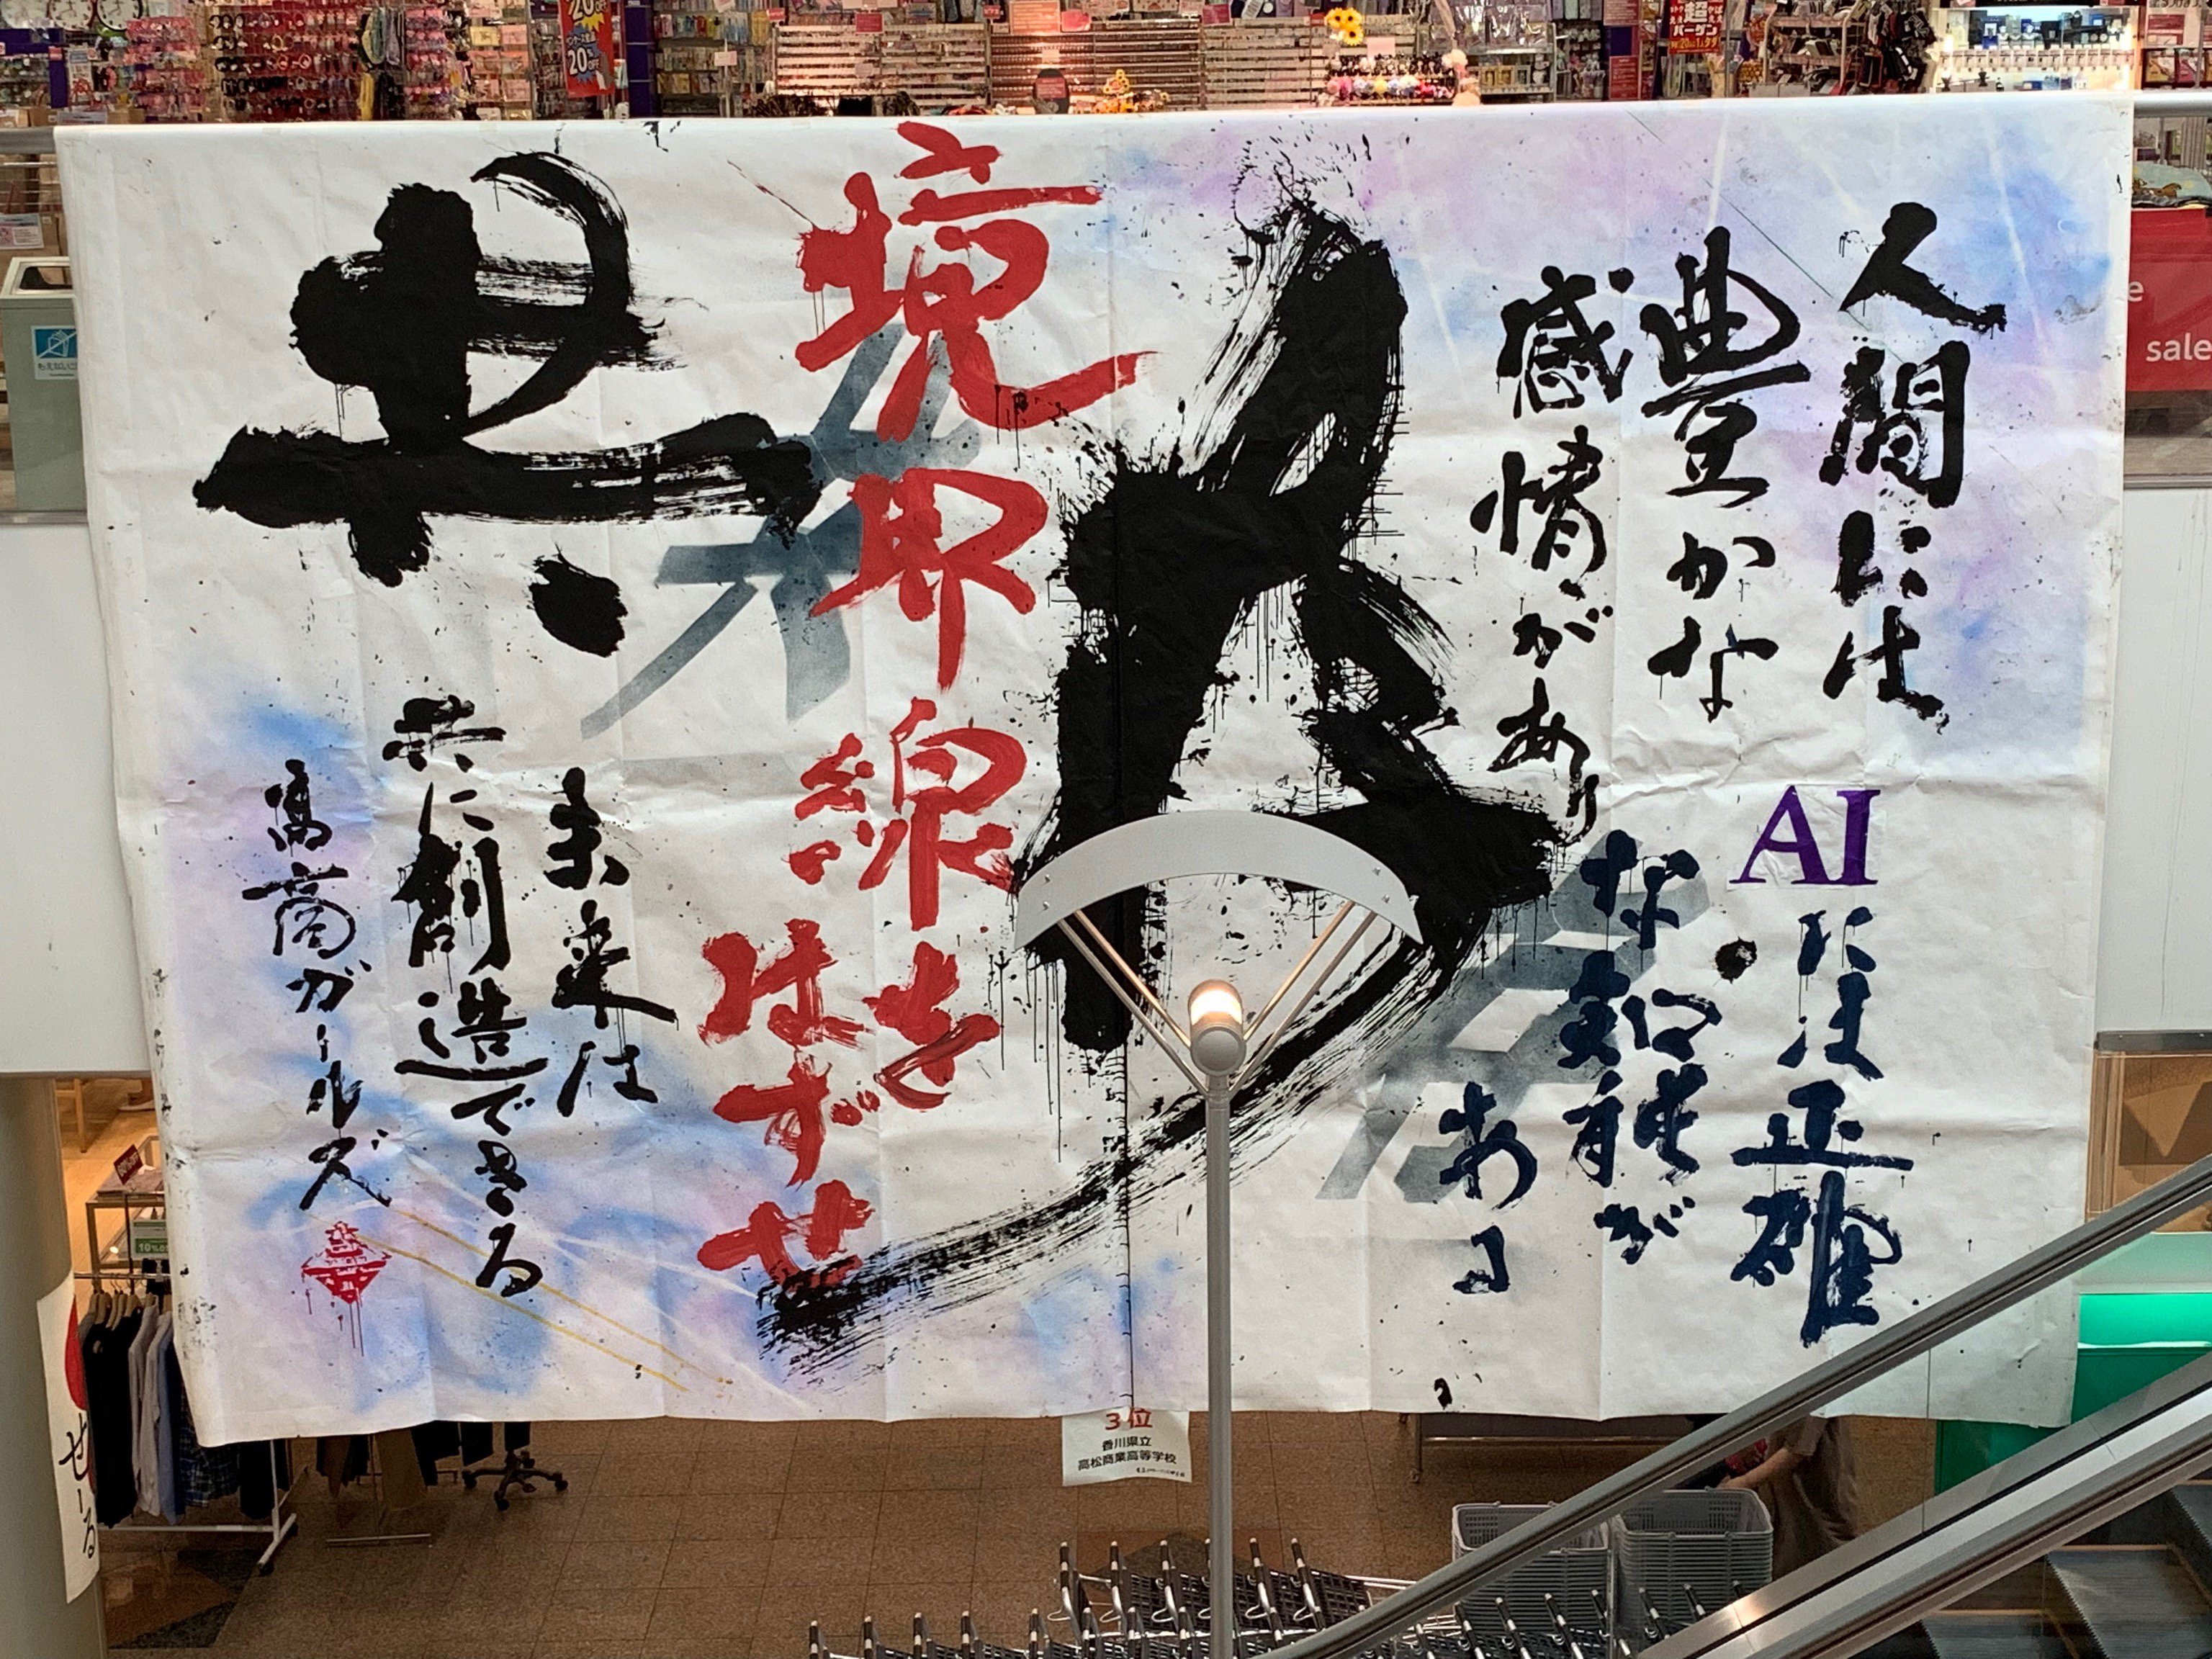 人間には
豊かな
感情があり
AIには正確
な知能が
ある
境界線を
はずせ
共
未来は
共に創造できる
高商ガールズ
3位
香川県立
高松商業高等学校
sale
せーる
20%
OFF
超
バーゲン